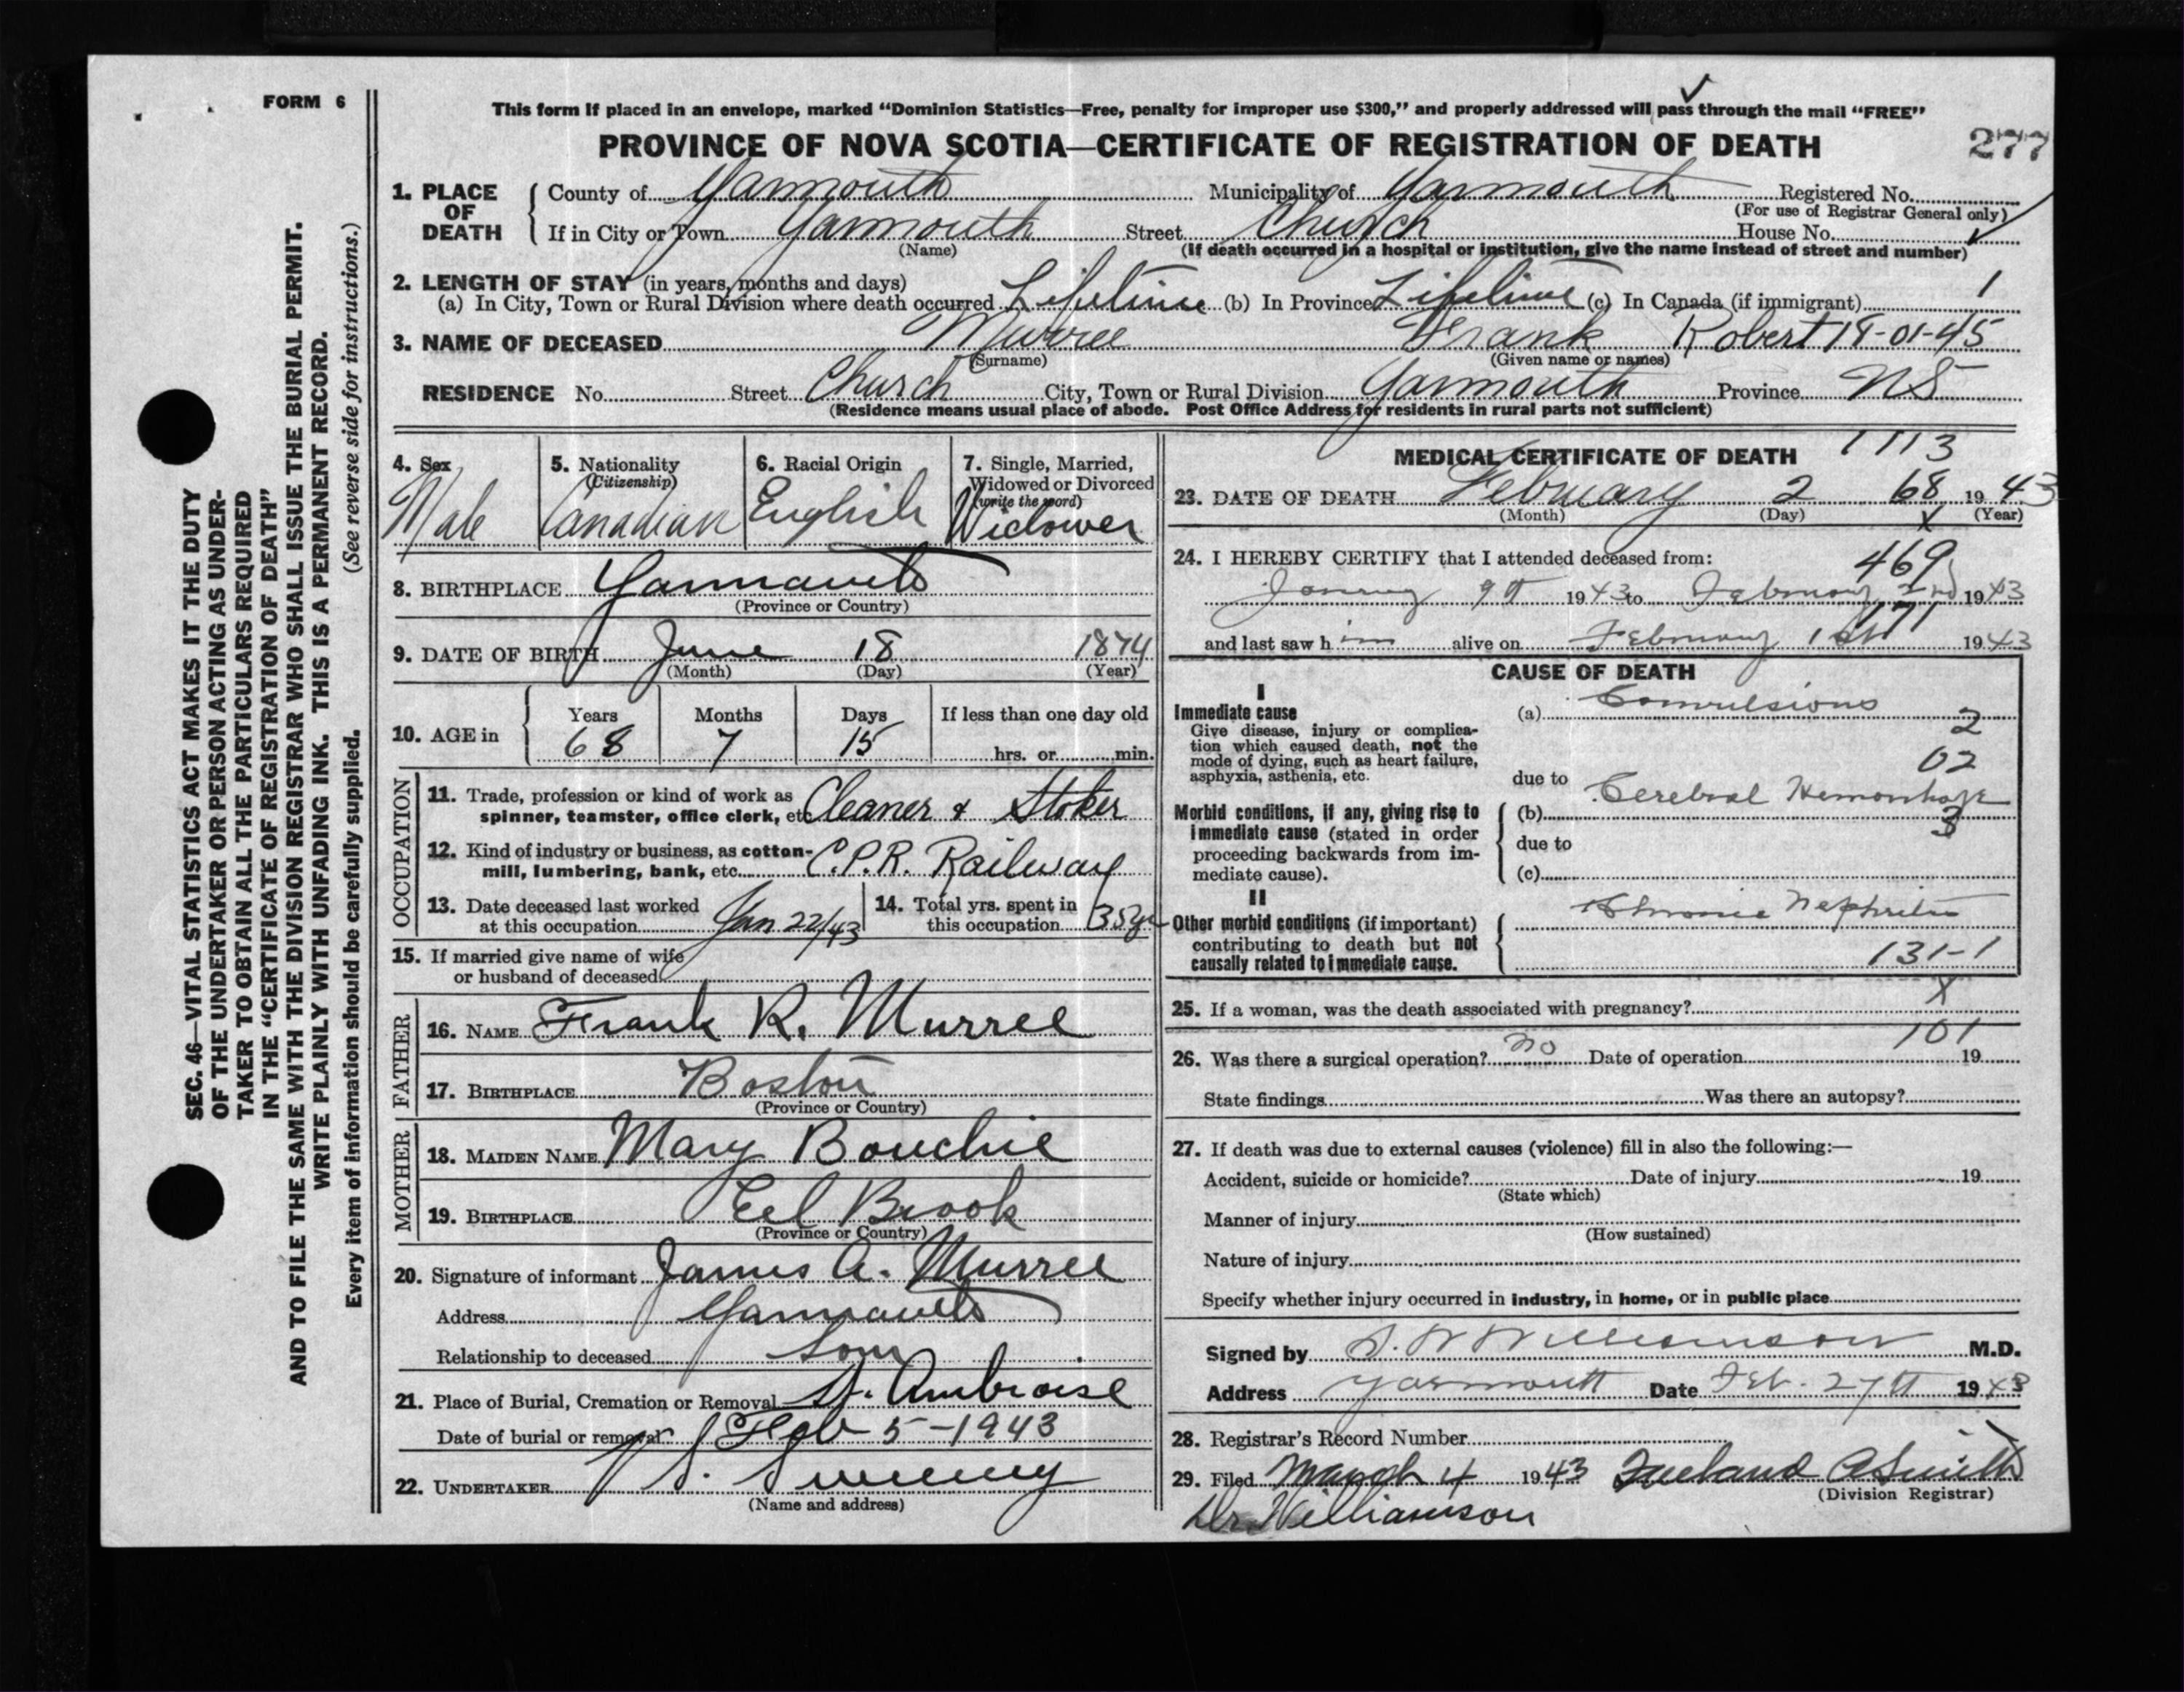 FORM 6
This form if placed in an envelope, marked “Dominion Statistics—Free, penalty for improper use $300,” and properly addressed will pass through the mail “FREE”
PROVINCE OF NOVA SCOTIA—CERTIFICATE OF REGISTRATION OF DEATH 277
1. PLACE OF DEATH County of Yarmouth Municipality of Yarmouth Registered No.
(For use of Registrar General only)
If in City or Town Yarmouth Street Church House No.
(Name) (If death occurred in a hospital or institution, give the name instead of street and number)
2. LENGTH OF STAY (in years, months and days)
(a) In City, Town or Rural Division where death occurred Lifetime (b) In Province Lifetime (c) In Canada (if immigrant) 1
3. NAME OF DECEASED Murree Frank Robert 18-01-45
(Surname) (Given name or names)
RESIDENCE No. Street Church City, Town or Rural Division Yarmouth Province NS
(Residence means usual place of abode. Post Office Address for residents in rural parts not sufficient)
4. Sex Male
5. Nationality (Citizenship) Canadian
6. Racial Origin English
7. Single, Married, Widowed or Divorced (write the word) Widower
8. BIRTHPLACE Yarmouth
(Province or Country)
9. DATE OF BIRTH June 18 1874
(Month) (Day) (Year)
10. AGE in Years 68 Months 7 Days 15 If less than one day old
hrs. or min.
OCCUPATION
11. Trade, profession or kind of work as spinner, teamster, office clerk, etc Cleaner & Stoker
12. Kind of industry or business, as cotton-mill, lumbering, bank, etc. C.P.R. Railway
13. Date deceased last worked at this occupation Jan 22/43
14. Total yrs. spent in this occupation 35 yr
15. If married give name of wife or husband of deceased
FATHER
16. NAME Frank R. Murree
17. BIRTHPLACE Boston
(Province or Country)
MOTHER
18. MAIDEN NAME Mary Bouchie
19. BIRTHPLACE Eel Brook
(Province or Country)
20. Signature of informant James A. Murree
Address Yarmouth
Relationship to deceased Son
21. Place of Burial, Cremation or Removal St. Ambroise
Date of burial or removal Feb 5-1943
22. UNDERTAKER V. S. Sweeny
(Name and address)
MEDICAL CERTIFICATE OF DEATH 1113
23. DATE OF DEATH February 2 68 1943
(Month) (Day) X (Year)
24. I HEREBY CERTIFY that I attended deceased from: 469
January 9th 1943 to February 2nd 1943
171
and last saw h im alive on February 1st 1943
CAUSE OF DEATH
I
Immediate cause
Give disease, injury or complication which caused death, not the mode of dying, such as heart failure, asphyxia, asthenia, etc.
(a) Convulsions
2
02
due to
Morbid conditions, if any, giving rise to immediate cause (stated in order proceeding backwards from immediate cause).
(b) Cerebral Hemorrhage
3
due to
(c)
II
Other morbid conditions (if important) contributing to death but not causally related to immediate cause.
Chronic Nephritis
131-1
25. If a woman, was the death associated with pregnancy? X
101
26. Was there a surgical operation? no Date of operation 19
State findings Was there an autopsy?
27. If death was due to external causes (violence) fill in also the following:—
Accident, suicide or homicide? Date of injury 19
(State which)
Manner of injury
(How sustained)
Nature of injury
Specify whether injury occurred in industry, in home, or in public place
Signed by Williamson M.D.
Address Yarmouth Date Feb. 27th 1943
28. Registrar's Record Number
29. Filed March 4 1943 A Smith
(Division Registrar)
Dr. Williamson
SEC. 46—VITAL STATISTICS ACT MAKES IT THE DUTY
OF THE UNDERTAKER OR PERSON ACTING AS UNDER-
TAKER TO OBTAIN ALL THE PARTICULARS REQUIRED
IN THE “CERTIFICATE OF REGISTRATION OF DEATH”
AND TO FILE THE SAME WITH THE DIVISION REGISTRAR WHO SHALL ISSUE THE BURIAL PERMIT.
WRITE PLAINLY WITH UNFADING INK. THIS IS A PERMANENT RECORD.
Every item of information should be carefully supplied. (See reverse side for instructions.)